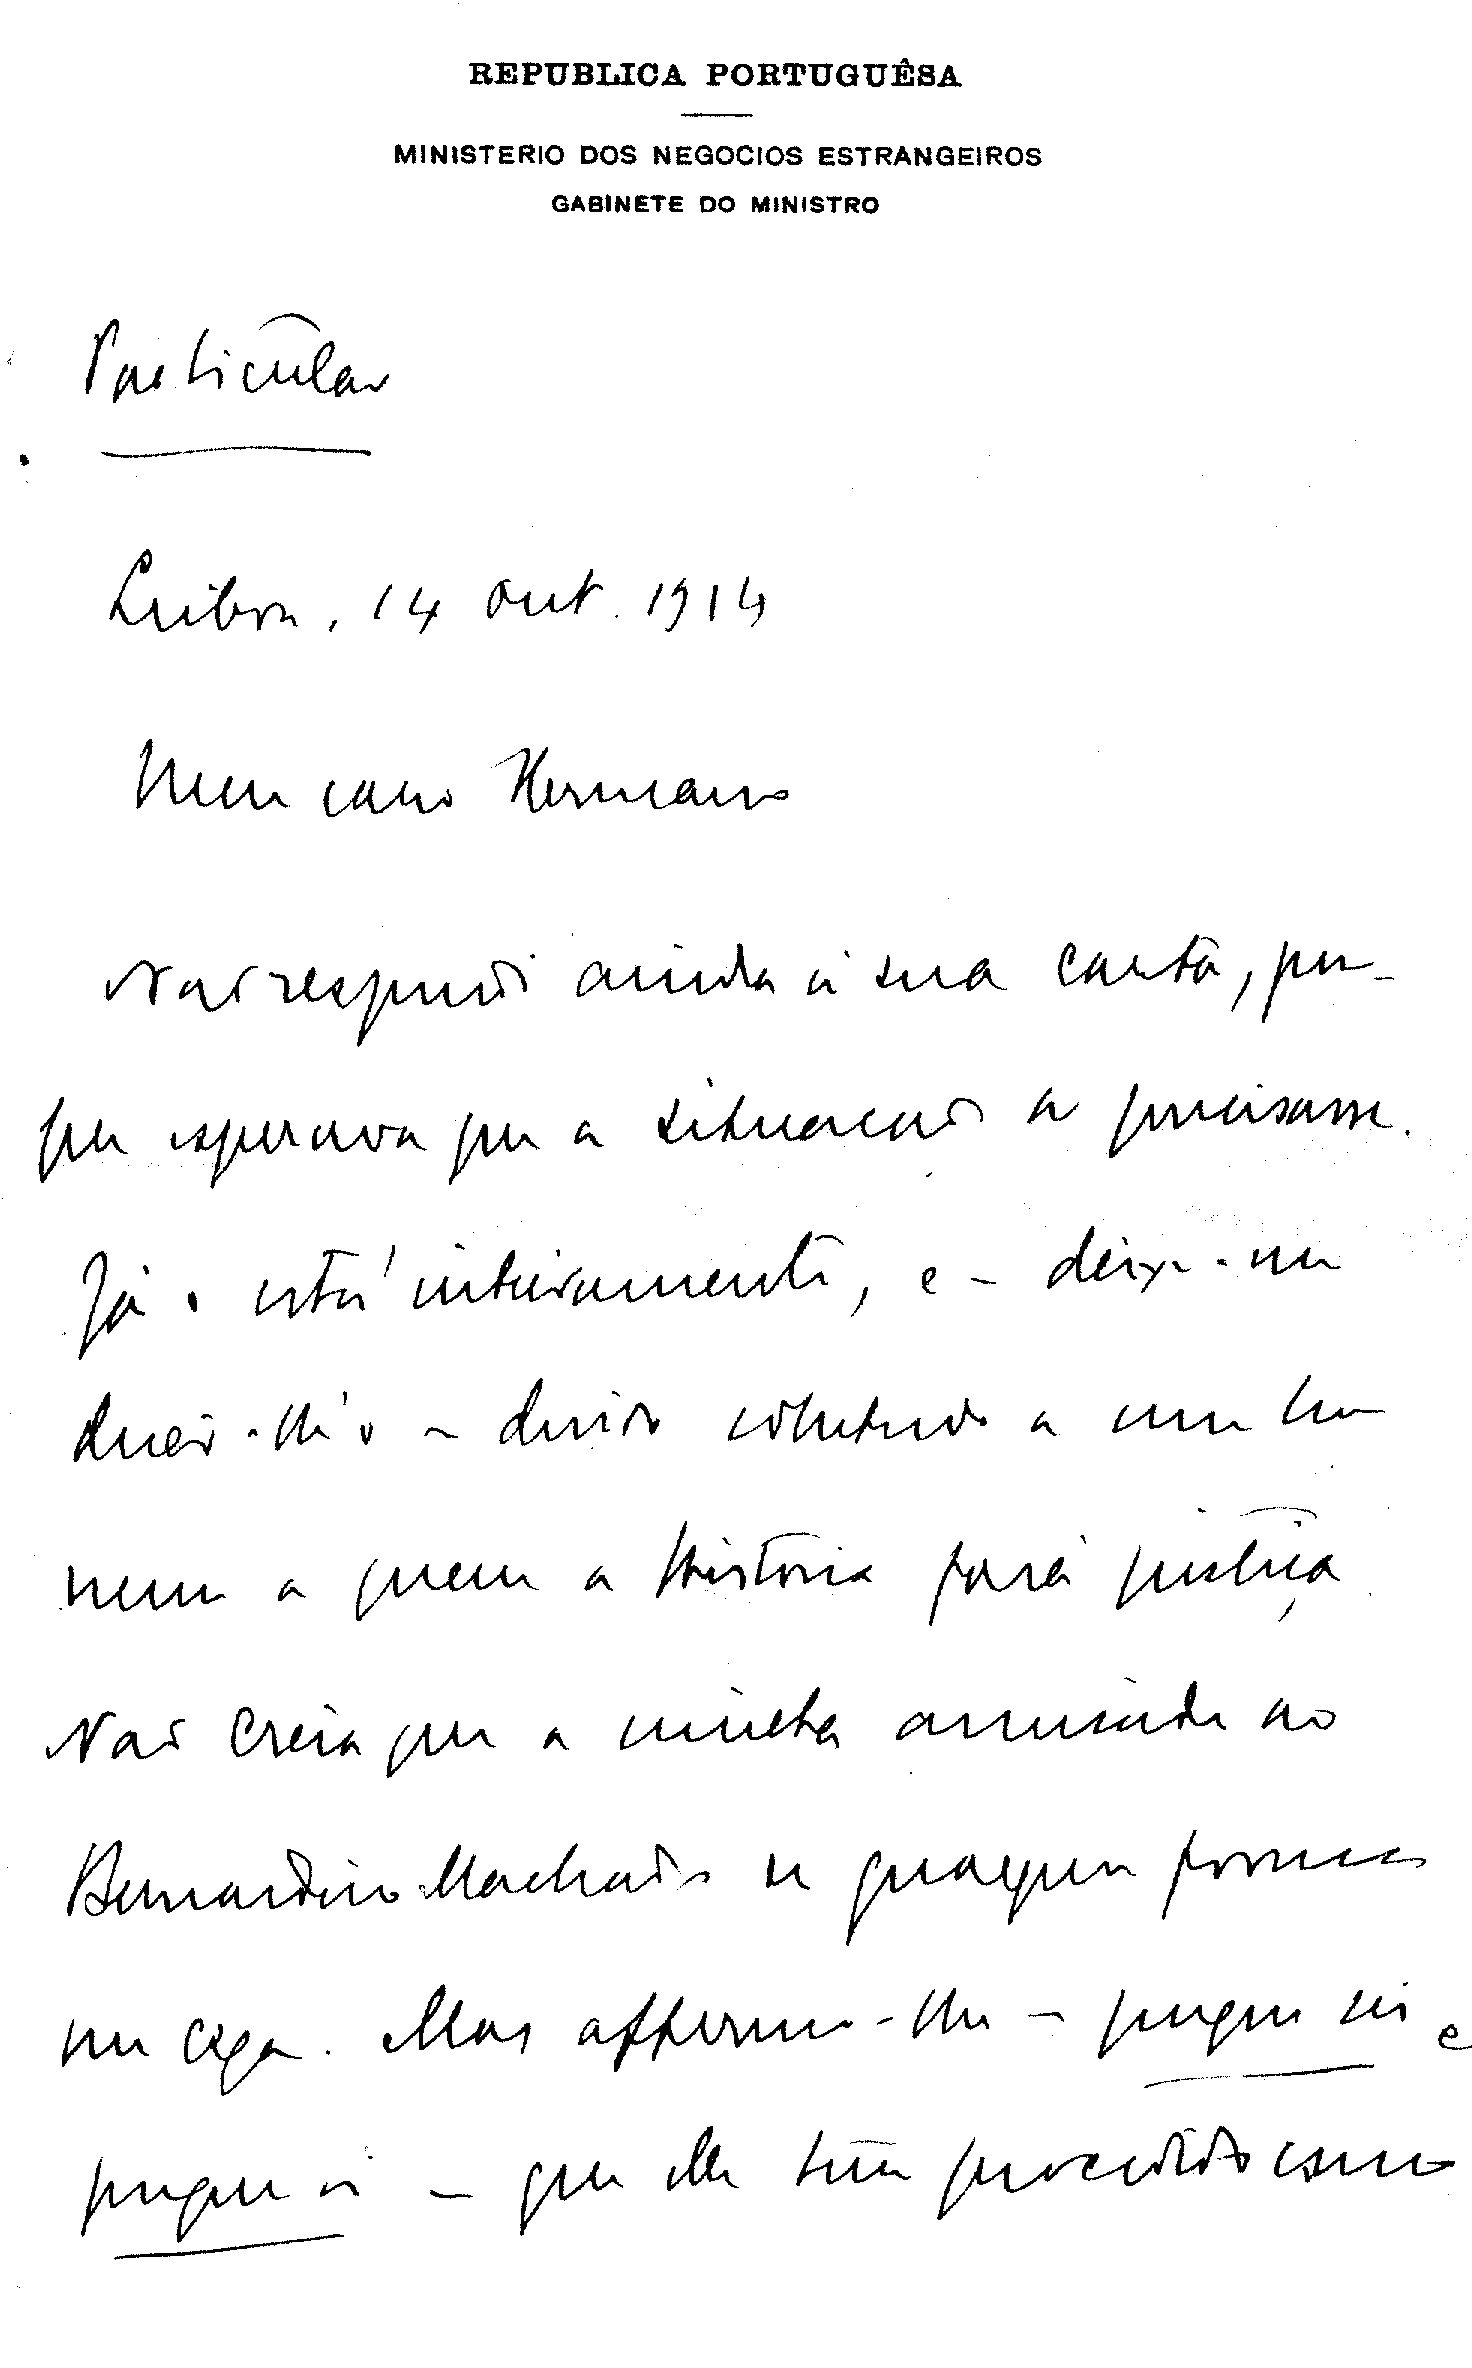 REPUBLICA PORTUGUÊSA
MINISTERIO DOS NEGOCIOS ESTRANGEIROS
GABINETE DO MINISTRO
Particular
Lisboa, 14 out. 1914
Meu caro Hermano
Não respondi ainda á sua carta, por-
que esperava que a situação a precisasse.
Já o está inteiramente, e – deixe-me
dizer-lh'o – devido sobretudo a um ho
mem a quem a Historia fará justiça
Não creia que a minha amisade ao
Bernardino Machado de qualquer forma
me cega. Mas affirmo-lhe – porque sei e
porque vi – que elle tem procedido como